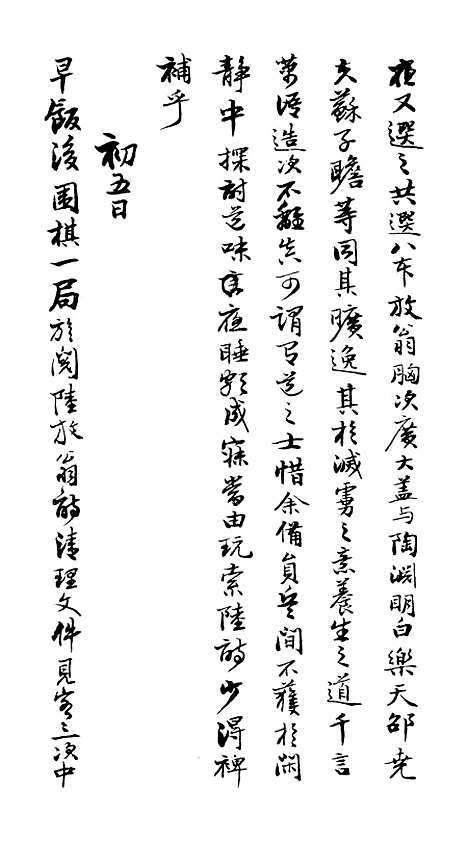 夜又選之共選八本放翁胸次廣大盖与陶淵明白樂天邵堯
夫蘇子瞻等同其曠逸其於滅虜之意養生之道千言
萬語造次不離真可謂有道之士惜余備員兵間不獲於閑
静中探討道味夜睡頗成寐當由玩索陸詩少得裨
補乎
初五日
早飯後圍棋一局旋閱陸放翁詩清理文件見客三次中